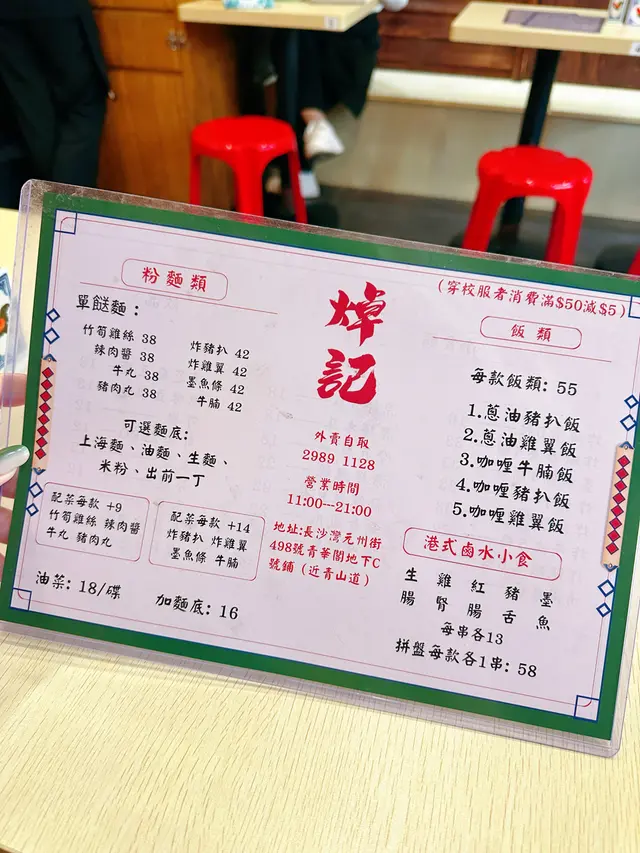 (穿校服者消費滿$50減$5)
粉麵類
單餸麵：
竹筍雞絲 38
辣肉醬 38
牛丸 38
豬肉丸 38
炸豬扒 42
炸雞翼 42
墨魚條 42
牛腩 42
可選麵底：
上海麵、油麵、生麵、
米粉、出前一丁
配菜每款 +9
竹筍雞絲 辣肉醬
牛丸 豬肉丸
配菜每款 +14
炸豬扒 炸雞翼
墨魚條 牛腩
油菜: 18/碟
加麵底: 16
焯記
外賣自取
2989 1128
營業時間
11:00---21:00
地址:長沙灣元州街
498號青華閣地下C
號鋪 (近青山道)
飯類
每款飯類: 55
1.蔥油豬扒飯
2.蔥油雞翼飯
3.咖喱牛腩飯
4.咖喱豬扒飯
5.咖喱雞翼飯
港式鹵水小食
生腸 雞腎 紅腸 豬舌 墨魚
每串各13
拼盤每款各1串: 58